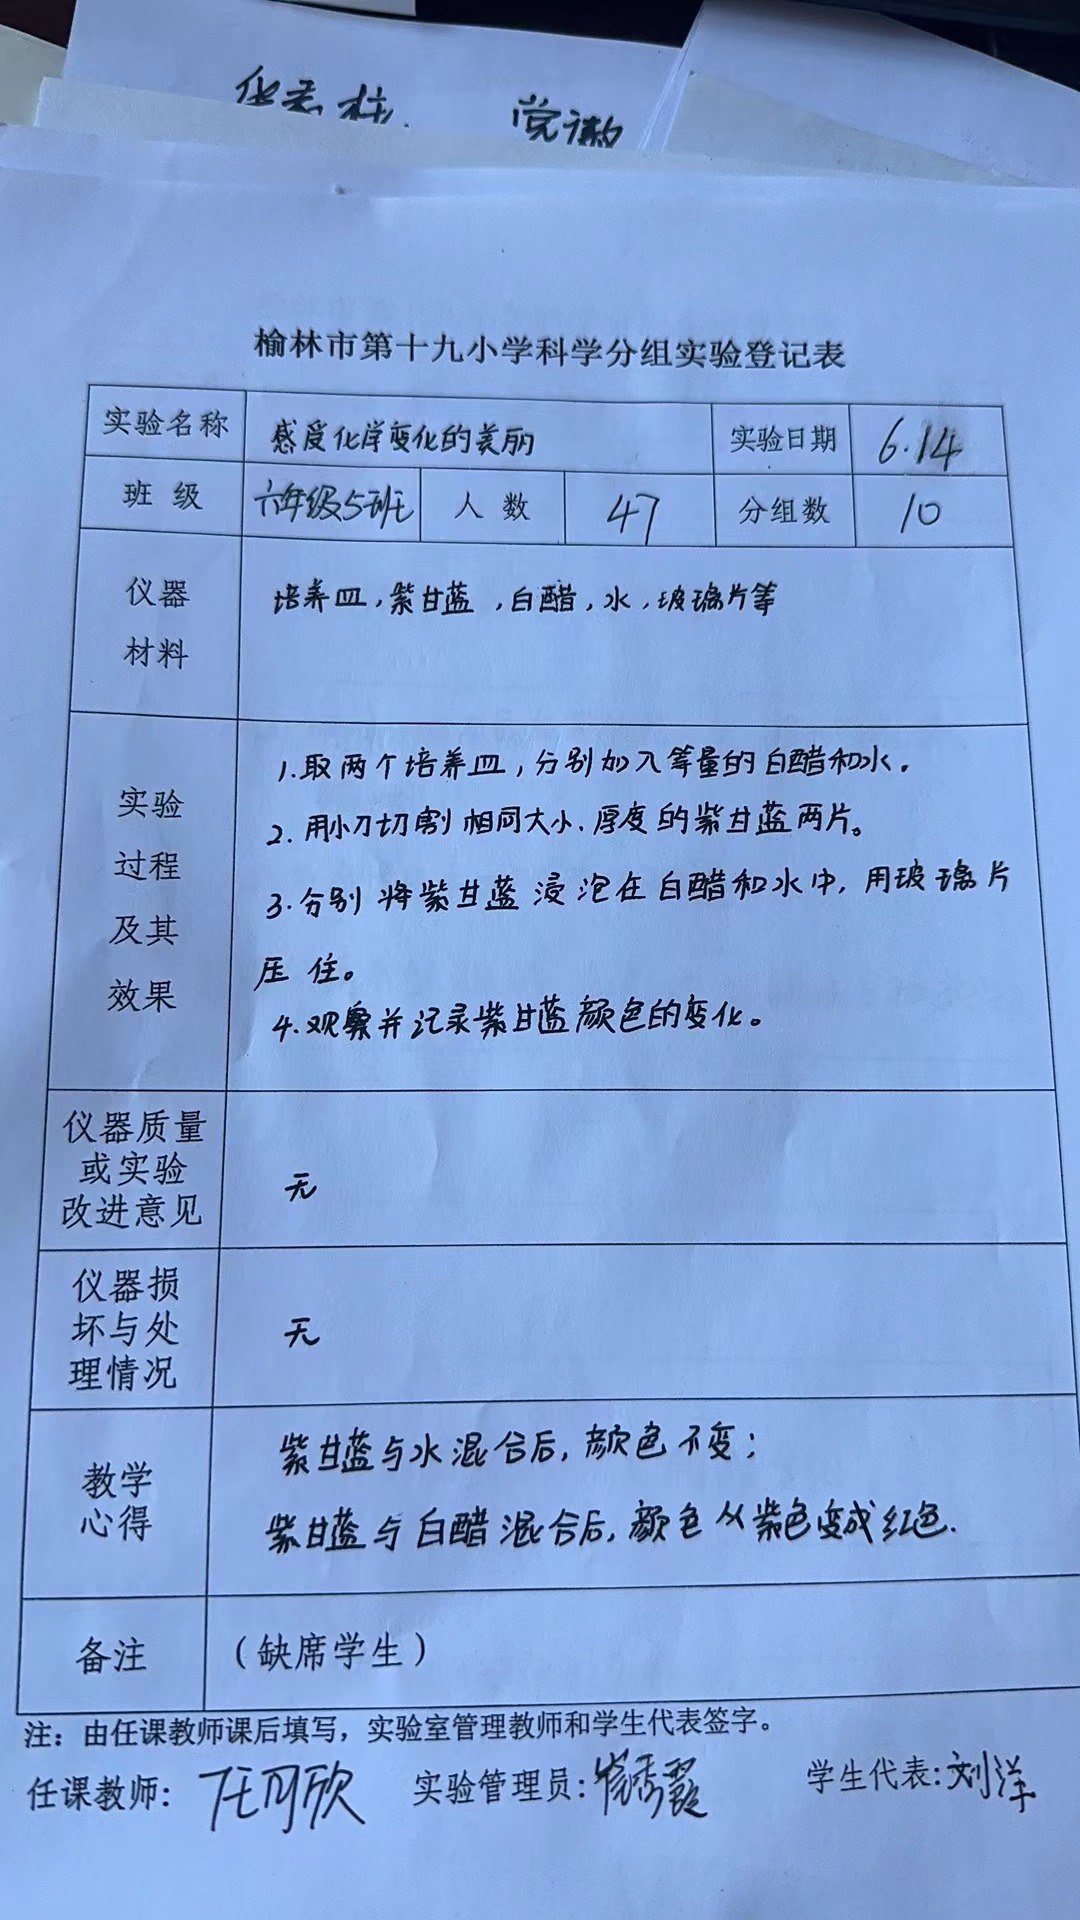 党徽
榆林市第十九小学科学分组实验登记表
实验名称 感受化学变化的美丽 实验日期 6.14
班 级 六年级5班 人 数 47 分组数 10
仪器
材料
培养皿，紫甘蓝，白醋，水，玻璃片等
实验
过程
及其
效果
1.取两个培养皿，分别加入等量的白醋和水。
2.用小刀切割相同大小、厚度的紫甘蓝两片。
3.分别将紫甘蓝浸泡在白醋和水中，用玻璃片
压住。
4.观察并记录紫甘蓝颜色的变化。
仪器质量
或实验
改进意见
无
仪器损
坏与处
理情况
无
教学
心得
紫甘蓝与水混合后，颜色不变；
紫甘蓝与白醋混合后，颜色从紫色变成红色.
备注 （缺席学生）
注：由任课教师课后填写，实验室管理教师和学生代表签字。
任课教师：任可欣 实验管理员：秀霞 学生代表：刘洋